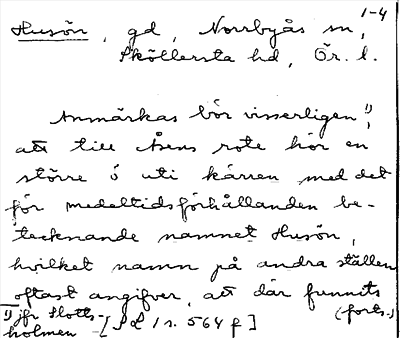 1-4
Husön, gd, Norrbyås sn,
Sköllersta hd, Ör. l.
Anmärkas bör visserligen 1),
att till Åsens rote hör en
större ö uti kärren med det
för medeltidsförhållanden be-
tecknande namnet Husön,
hvilket namn på andra ställen
oftast angifver, att där funnits
(forts.)
1) jfr Slotts-
holmen [SL 1 s. 564 f]